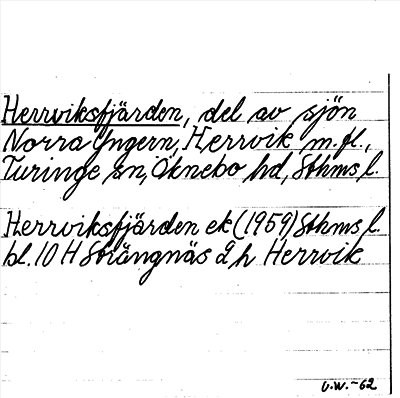 Herrviksfjärden, del av sjön
Norra Yngern, Herrvik m.fl.,
Turinge sn, Öknebo hd, Sthms l.
Herrviksfjärden ek (1959) Sthms l.
bl. 10 H Strängnäs 2 h Herrvik
U.W.-62